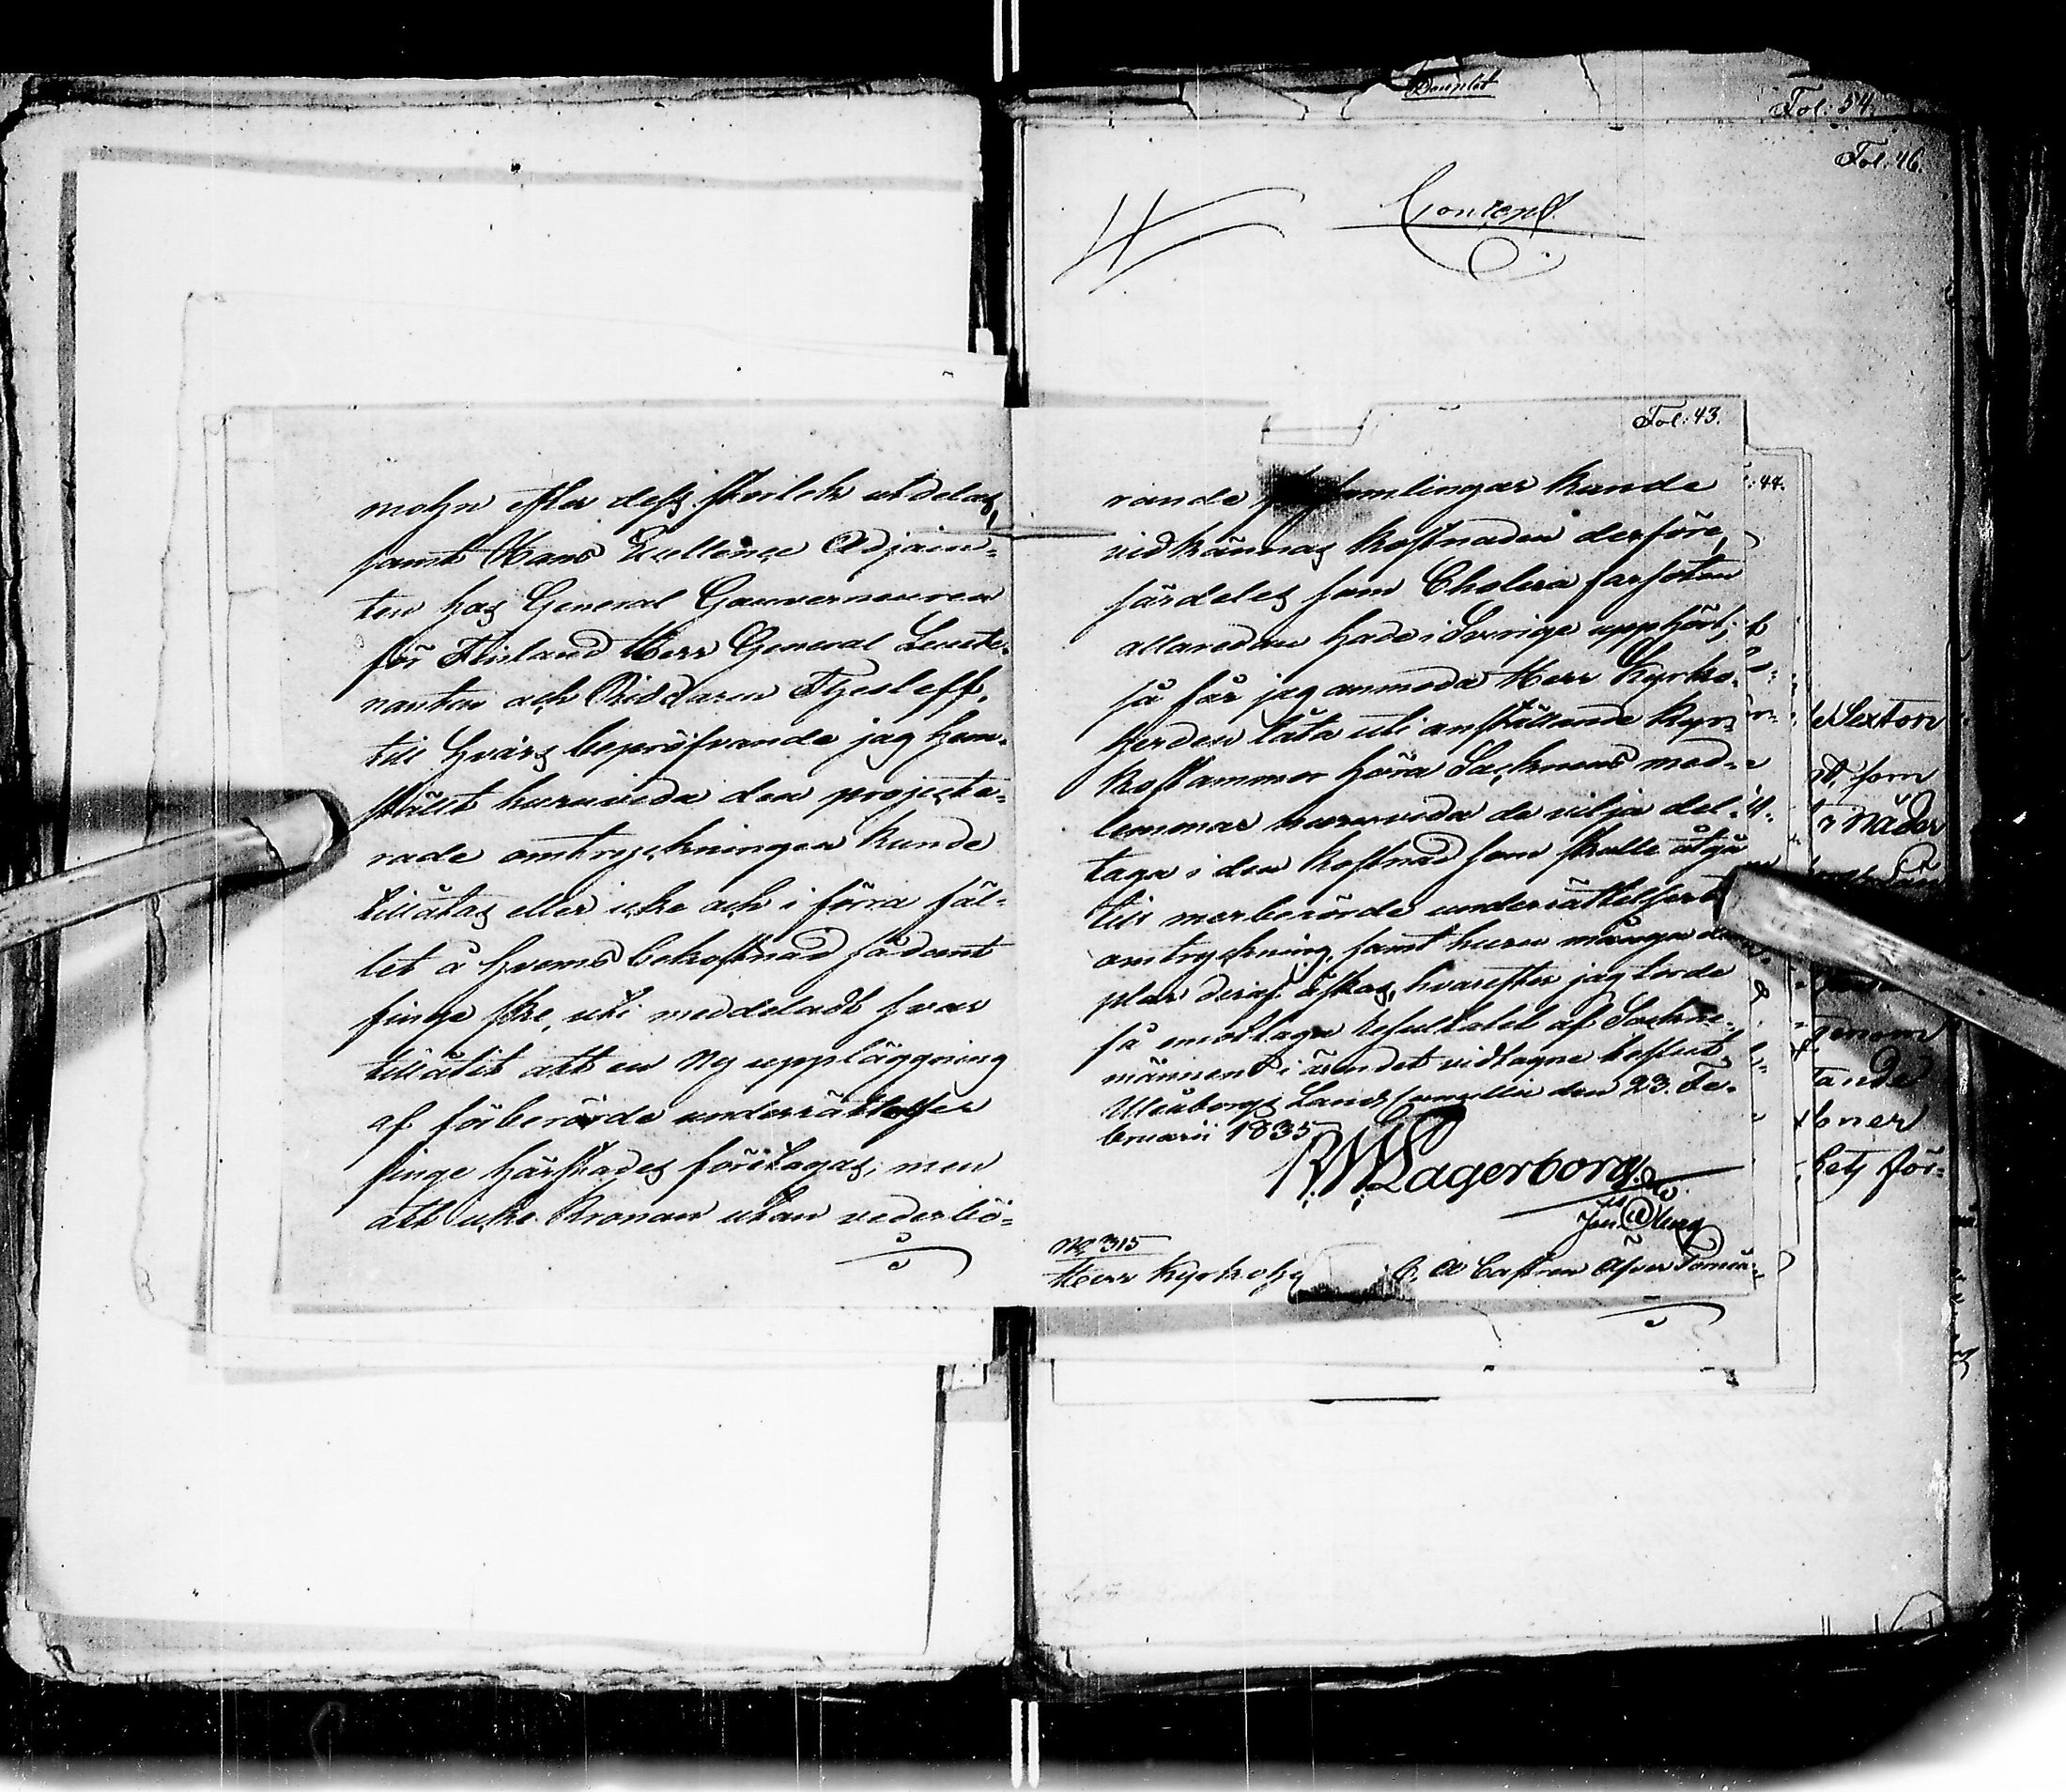 mohn efter dess storlek utdelas,
samt Hans Excellence Adjoin-
ten hos General Gouverneuren
för Finland Herr General Lieute-
nanten och Riddaren Thesleff,
till hvars bepröfvande jag hem-
stält huruvida den projecte-
rade omtryckningen kunde
tillåtas eller icke och i förra fäl-
let å hvems bekostnad sådant
finge ske, uti meddeladt svar
tillåtit att en ny uppläggning
af förberörde underrättelser
finge härstädes företagas, men
att icke Kronan utan vederbö-
Douplet
Fol: 54.
Fol: 46.
Fol: 43.
rande församlingar kunde
vidkännas kostnaden derföre,
särdeles som Cholera farsoten
allaredan hade i Sverige upphört;
så får jag anmoda Herr Kyrko-
herden låta uti anställande Kyr-
kostämmor höra Socknens med-
lemmar huruvida de vilja del-
taga i den kostnad som skulle åtgå
till merberörde underrättelsers
omtryckning, samt huru många
plar deraf åstas, hvarefter jag torde
få emottaga resultatet af Sockne-
männens i ämnet vidtagne beslut.
Uleåborgs Lands Cancellie den 23. Fe-
bruarii 1835
R W Lagerborg
No 315
Herr Kyrkoh C. A Castren Öfver Torneå
: 44.
Sexton
som
Nåder
genom
tande
oner
hets för-